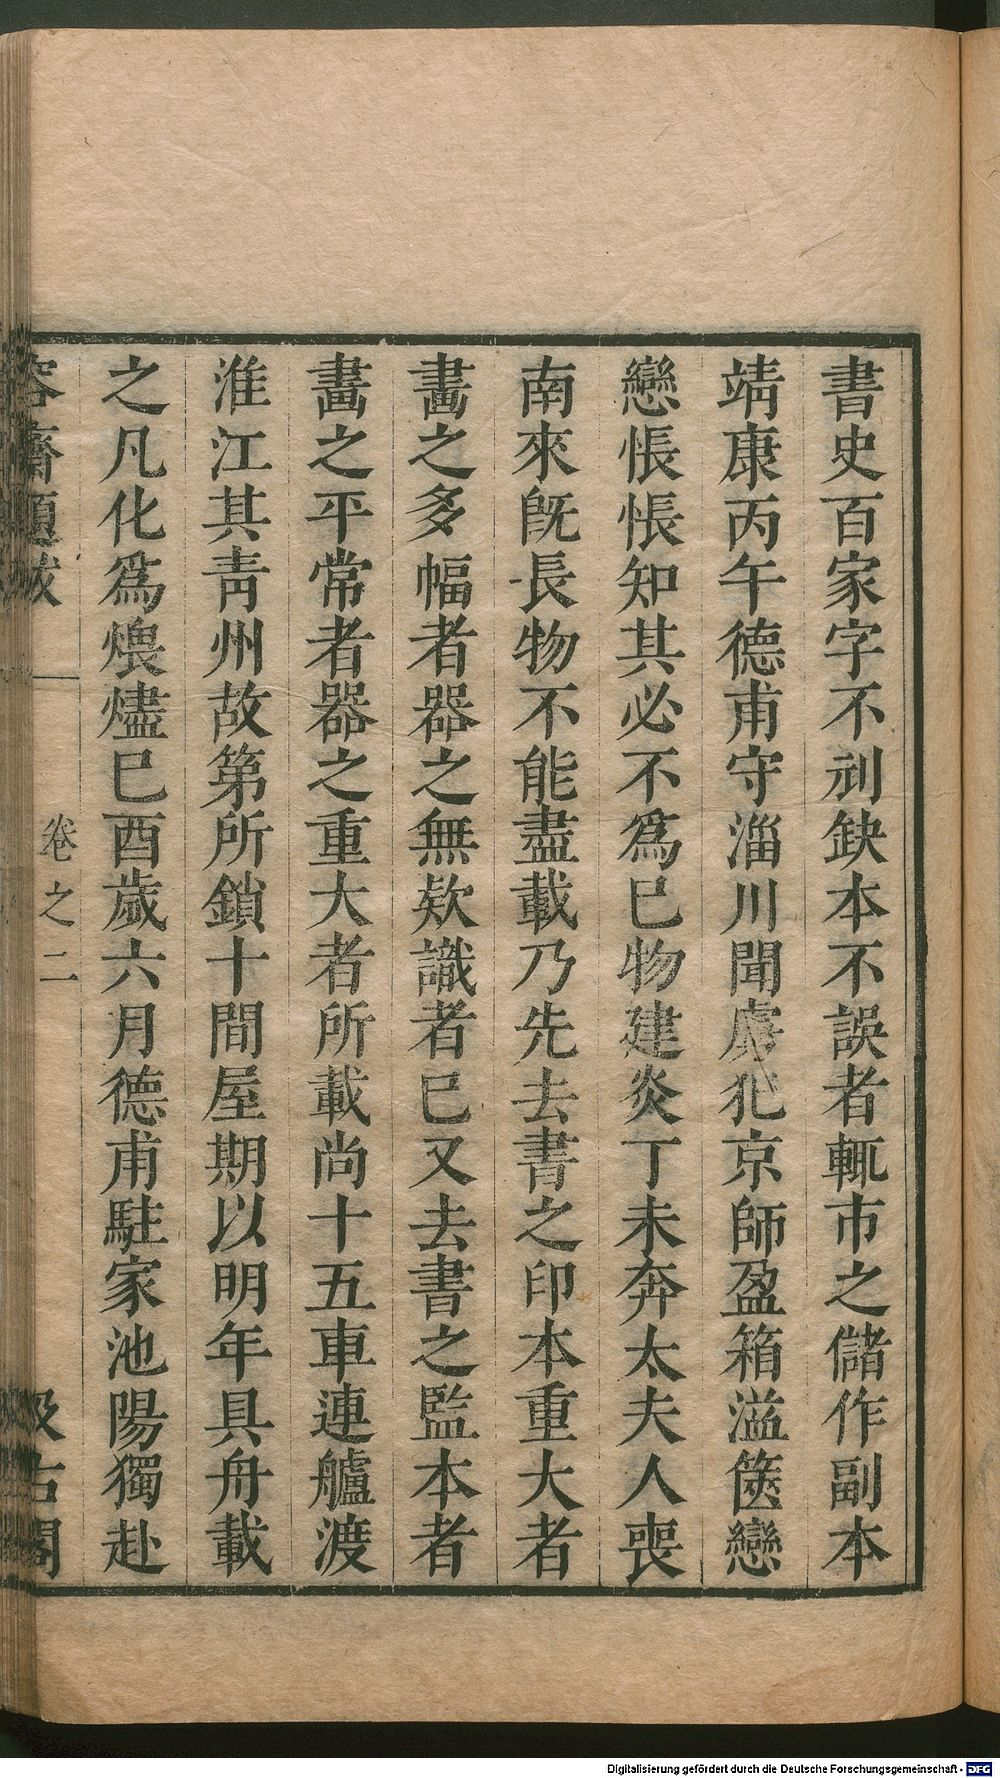 書史百家字不刓缺本不誤者輒市之儲作副本
靖康丙午德甫守淄川聞虜犯京師盈箱溢篋戀
戀悵悵知其必不爲已物建炎丁未奔太夫人喪
南來旣長物不能盡載乃先去書之印本重大者
畫之多幅者器之無欵識者已又去書之監本者
畫之平常者器之重大者所載尚十五車連艫渡
淮江其靑州故第所鎖十間屋期以明年具舟載
之凡化爲煨燼已酉歲六月德甫駐家池陽獨赴
容齋題跋 卷之二 汲古閣
Digitalisierung gefördert durch die Deutsche Forschungsgemeinschaft - DFG